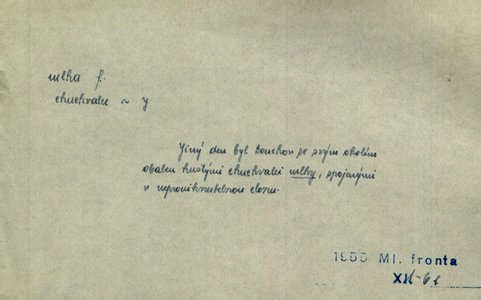 mlha f.
chuchvalce ~ y
Jiný den byl Kouchov se svým okolím
obalen hustými chuchvalci mlhy, spojenými
v neproniknutelnou clonu.
1955 Ml. fronta